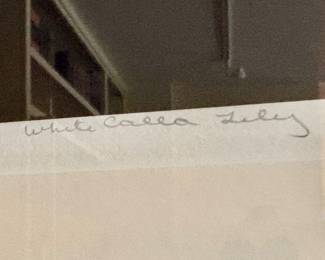 White Calla Lily